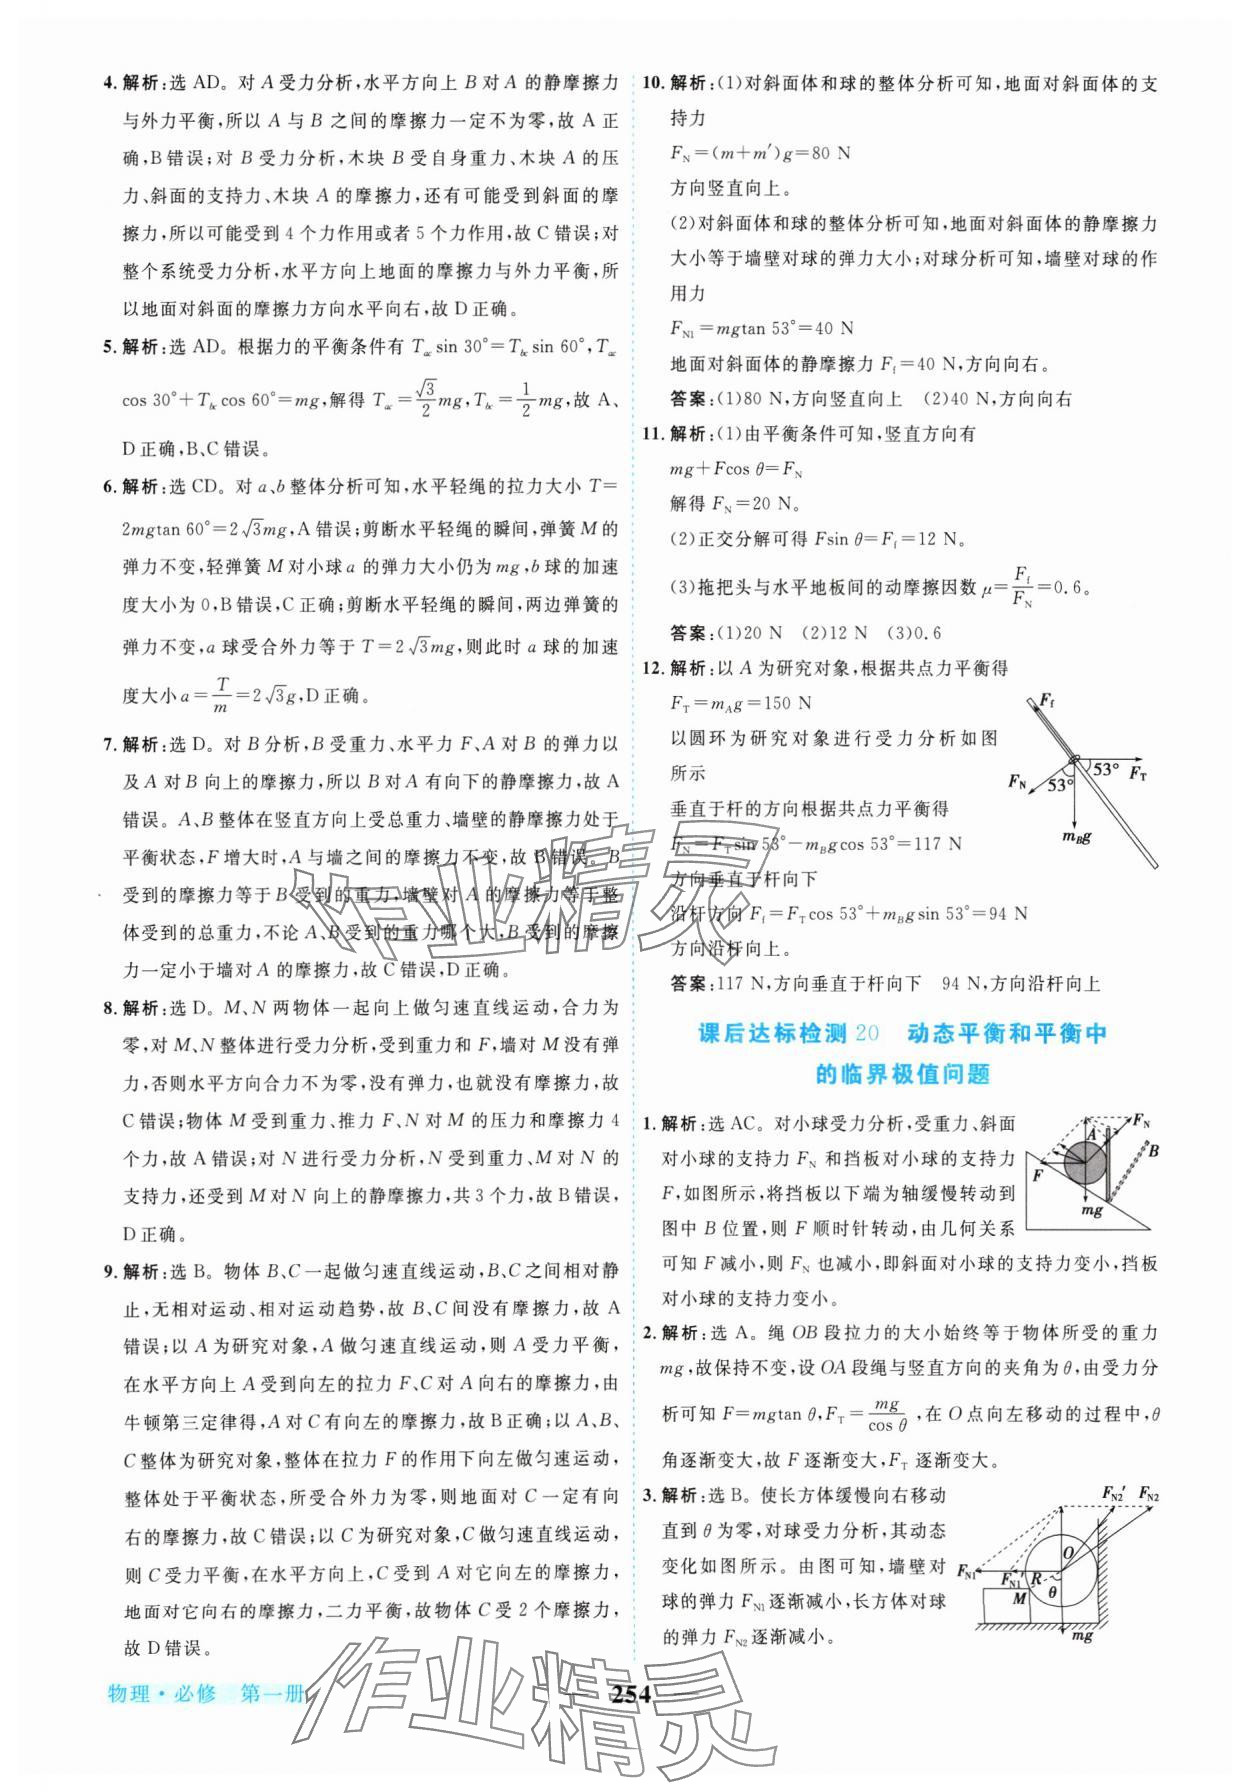 4. 解析:选 AD。对 A 受力分析,水平方向上 B 对 A 的静摩擦力
与外力平衡,所以 A 与 B 之间的摩擦力一定不为零,故 A 正
确,B 错误;对 B 受力分析,木块 B 受自身重力、木块 A 的压
力、斜面的支持力、木块 A 的摩擦力,还有可能受到斜面的摩
擦力,所以可能受到 4 个力作用或者 5 个力作用,故 C 错误;对
整个系统受力分析,水平方向上地面的摩擦力与外力平衡,所
以地面对斜面的摩擦力方向水平向右,故 D 正确。
5. 解析:选 AD。根据力的平衡条件有 T_{ac} sin 30°=T_{bc} sin 60°,T_{ac}
cos 30°+T_{bc} cos 60°=mg,解得 T_{ac}=\frac{\sqrt{3}}{2}mg,T_{bc}=\frac{1}{2}mg,故 A、
D 正确,B、C 错误。
6. 解析:选 CD。对 a、b 整体分析可知,水平轻绳的拉力大小 T=
2mgtan 60°=2√3mg,A 错误;剪断水平轻绳的瞬间,弹簧 M 的
弹力不变,轻弹簧 M 对小球 a 的弹力大小仍为 mg,b 球的加速
度大小为 0,B 错误,C 正确;剪断水平轻绳的瞬间,两边弹簧的
弹力不变,a 球受合外力等于 T=2√3mg,则此时 a 球的加速
度大小 a=\frac{T}{m}=2√3g,D 正确。
7. 解析:选 D。对 B 分析,B 受重力、水平力 F、A 对 B 的弹力以
及 A 对 B 向上的摩擦力,所以 B 对 A 有向下的静摩擦力,故 A
错误。A、B 整体在竖直方向上受总重力、墙壁的静摩擦力处于
平衡状态,F 增大时,A 与墙之间的摩擦力不变,故 B 错误。B
受到的摩擦力等于 B 受到的重力,墙壁对 A 的摩擦力等于整
体受到的总重力,不论 A、B 受到的重力哪个大,B 受到的摩擦
力一定小于墙对 A 的摩擦力,故 C 错误,D 正确。
8. 解析:选 D。M、N 两物体一起向上做匀速直线运动,合力为
零,对 M、N 整体进行受力分析,受到重力和 F,墙对 M 无弹
力,否则水平方向合力不为零,没有弹力就没有摩擦力,故
C 错误;物体 M 受到重力、推力 F、N 对 M 的压力和摩擦力 4
个力,故 A 错误;对 N 进行受力分析,N 受到重力、M 对 N 的
支持力,还受到 M 对 N 向上的静摩擦力,共 3 个力,故 B 错误,
D 正确。
9. 解析:选 B。物体 B、C 一起做匀速直线运动,B、C 之间相对静
止,无相对运动、相对运动趋势,故 B、C 间没有摩擦力,故 A
错误;以 A 为研究对象,A 做匀速直线运动,则 A 受力平衡,
在水平方向上 A 受到向左的拉力 F、C 对 A 向右的摩擦力,由
牛顿第三定律得,A 对 C 有向左的摩擦力,故 B 正确;以 A、B、
C 整体为研究对象,整体在拉力 F 的作用下向左做匀速运动,
整体处于平衡状态,所受合外力为零,则地面对 C 一定有向
右的摩擦力,故 C 错误;以 C 为研究对象,C 做匀速直线运动,
则 C 受力平衡,在水平方向上,C 受到 A 对它向左的摩擦力,
地面对它向右的摩擦力,二力平衡,故物体 C 受 2 个摩擦力,
故 D 错误。
10. 解析:(1)对斜面体和球的整体分析可知,地面对斜面体的支
持力
F_N=(m+m′)g=80 N
方向竖直向上。
(2)对斜面体和球的整体分析可知,地面对斜面体的静摩擦力
大小等于墙壁对球的弹力大小;对球分析可知,墙壁对球的作
用力
F_{N1}=mgtan 53°=40 N
地面对斜面体的静摩擦力 F_f=40 N,方向向右。
答案:(1)80 N,方向竖直向上 (2)40 N,方向向右
11. 解析:(1)由平衡条件可知,竖直方向有
mg+Fcos θ=F_N
解得 F_N=20 N。
(2)正交分解可得 Fsin θ=F_f=12 N。
(3)拖把头与水平地板间的动摩擦因数 μ=\frac{F_f}{F_N}=0.6。
答案:(1)20 N (2)12 N (3)0.6
12. 解析:以 A 为研究对象,根据共点力平衡得
F_T=m_Ag=150 N
以圆环为研究对象进行受力分析如图
所示
垂直于杆的方向根据共点力平衡得
F_N=F_Tsin 53°-m_Bgcos 53°=117 N
方向垂直于杆向下
沿杆方向 F_f=F_Tcos 53°+m_Bgsin 53°=94 N
方向沿杆向上。
答案:117 N,方向垂直于杆向下 94 N,方向沿杆向上
F_f
53°
F_T
F_N
53°
m_Bg
课后达标检测 20 动态平衡和平衡中
的临界极值问题
1. 解析:选 AC。对小球受力分析,受重力、斜面
对小球的支持力 F_N 和挡板对小球的支持力
F,如图所示,将挡板以下端为轴缓慢转动到
图中 B 位置,则 F 顺时针转动,由几何关系
可知 F 减小,则 F_N 也减小,即斜面对小球的支持力变小,挡板
对小球的支持力变小。
F_N
A
B
F
mg
2. 解析:选 A。绳 OB 段拉力的大小始终等于物体所受的重力
mg,故保持不变,设 OA 段绳与竖直方向的夹角为 θ,由受力分
析可知 F=mgtan θ,F_T=\frac{mg}{cos θ},在 O 点向左移动的过程中,θ
角逐渐变大,故 F 逐渐变大,F_T 逐渐变大。
3. 解析:选 B。使长方体缓慢向右移动
直到 θ 为零,对球受力分析,其动态
变化如图所示。由图可知,墙壁对
球的弹力 F_{N1} 逐渐减小,长方体对球
的弹力 F_{N2} 逐渐减小。
F_{N2}′ F_{N2}
O
F_{N1} F_{N1}′ R
M θ
mg
物理·必修 第一册
254
作业精灵
作业精灵